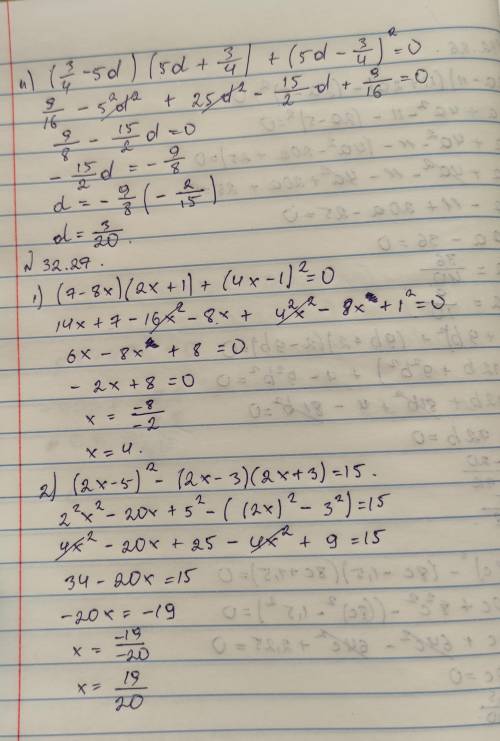 4) (3/4 - 5d) (5d + 3/4) + (5d - 3/4)² = 0
9/16 - 5²d² + 25d² - 15/2 d + 9/16 = 0
9/8 - 15/2 d = 0
- 15/2 d = - 9/8
d = - 9/8 (- 2/15)
d = 3/20.
№ 32.27.
1) (7-8x)(2x+1) + (4x-1)² = 0
14x + 7 - 16x² - 8x + 4²x² - 8x + 1² = 0
6x - 8x + 8 = 0
- 2x + 8 = 0
x = -8/-2
x = 4.
2) (2x-5)² - (2x-3)(2x+3) = 15.
2²x² - 20x + 5² - ((2x)² - 3²) = 15
4x² - 20x + 25 - 4x² + 9 = 15
34 - 20x = 15
-20x = -19
x = -19/-20
x = 19/20